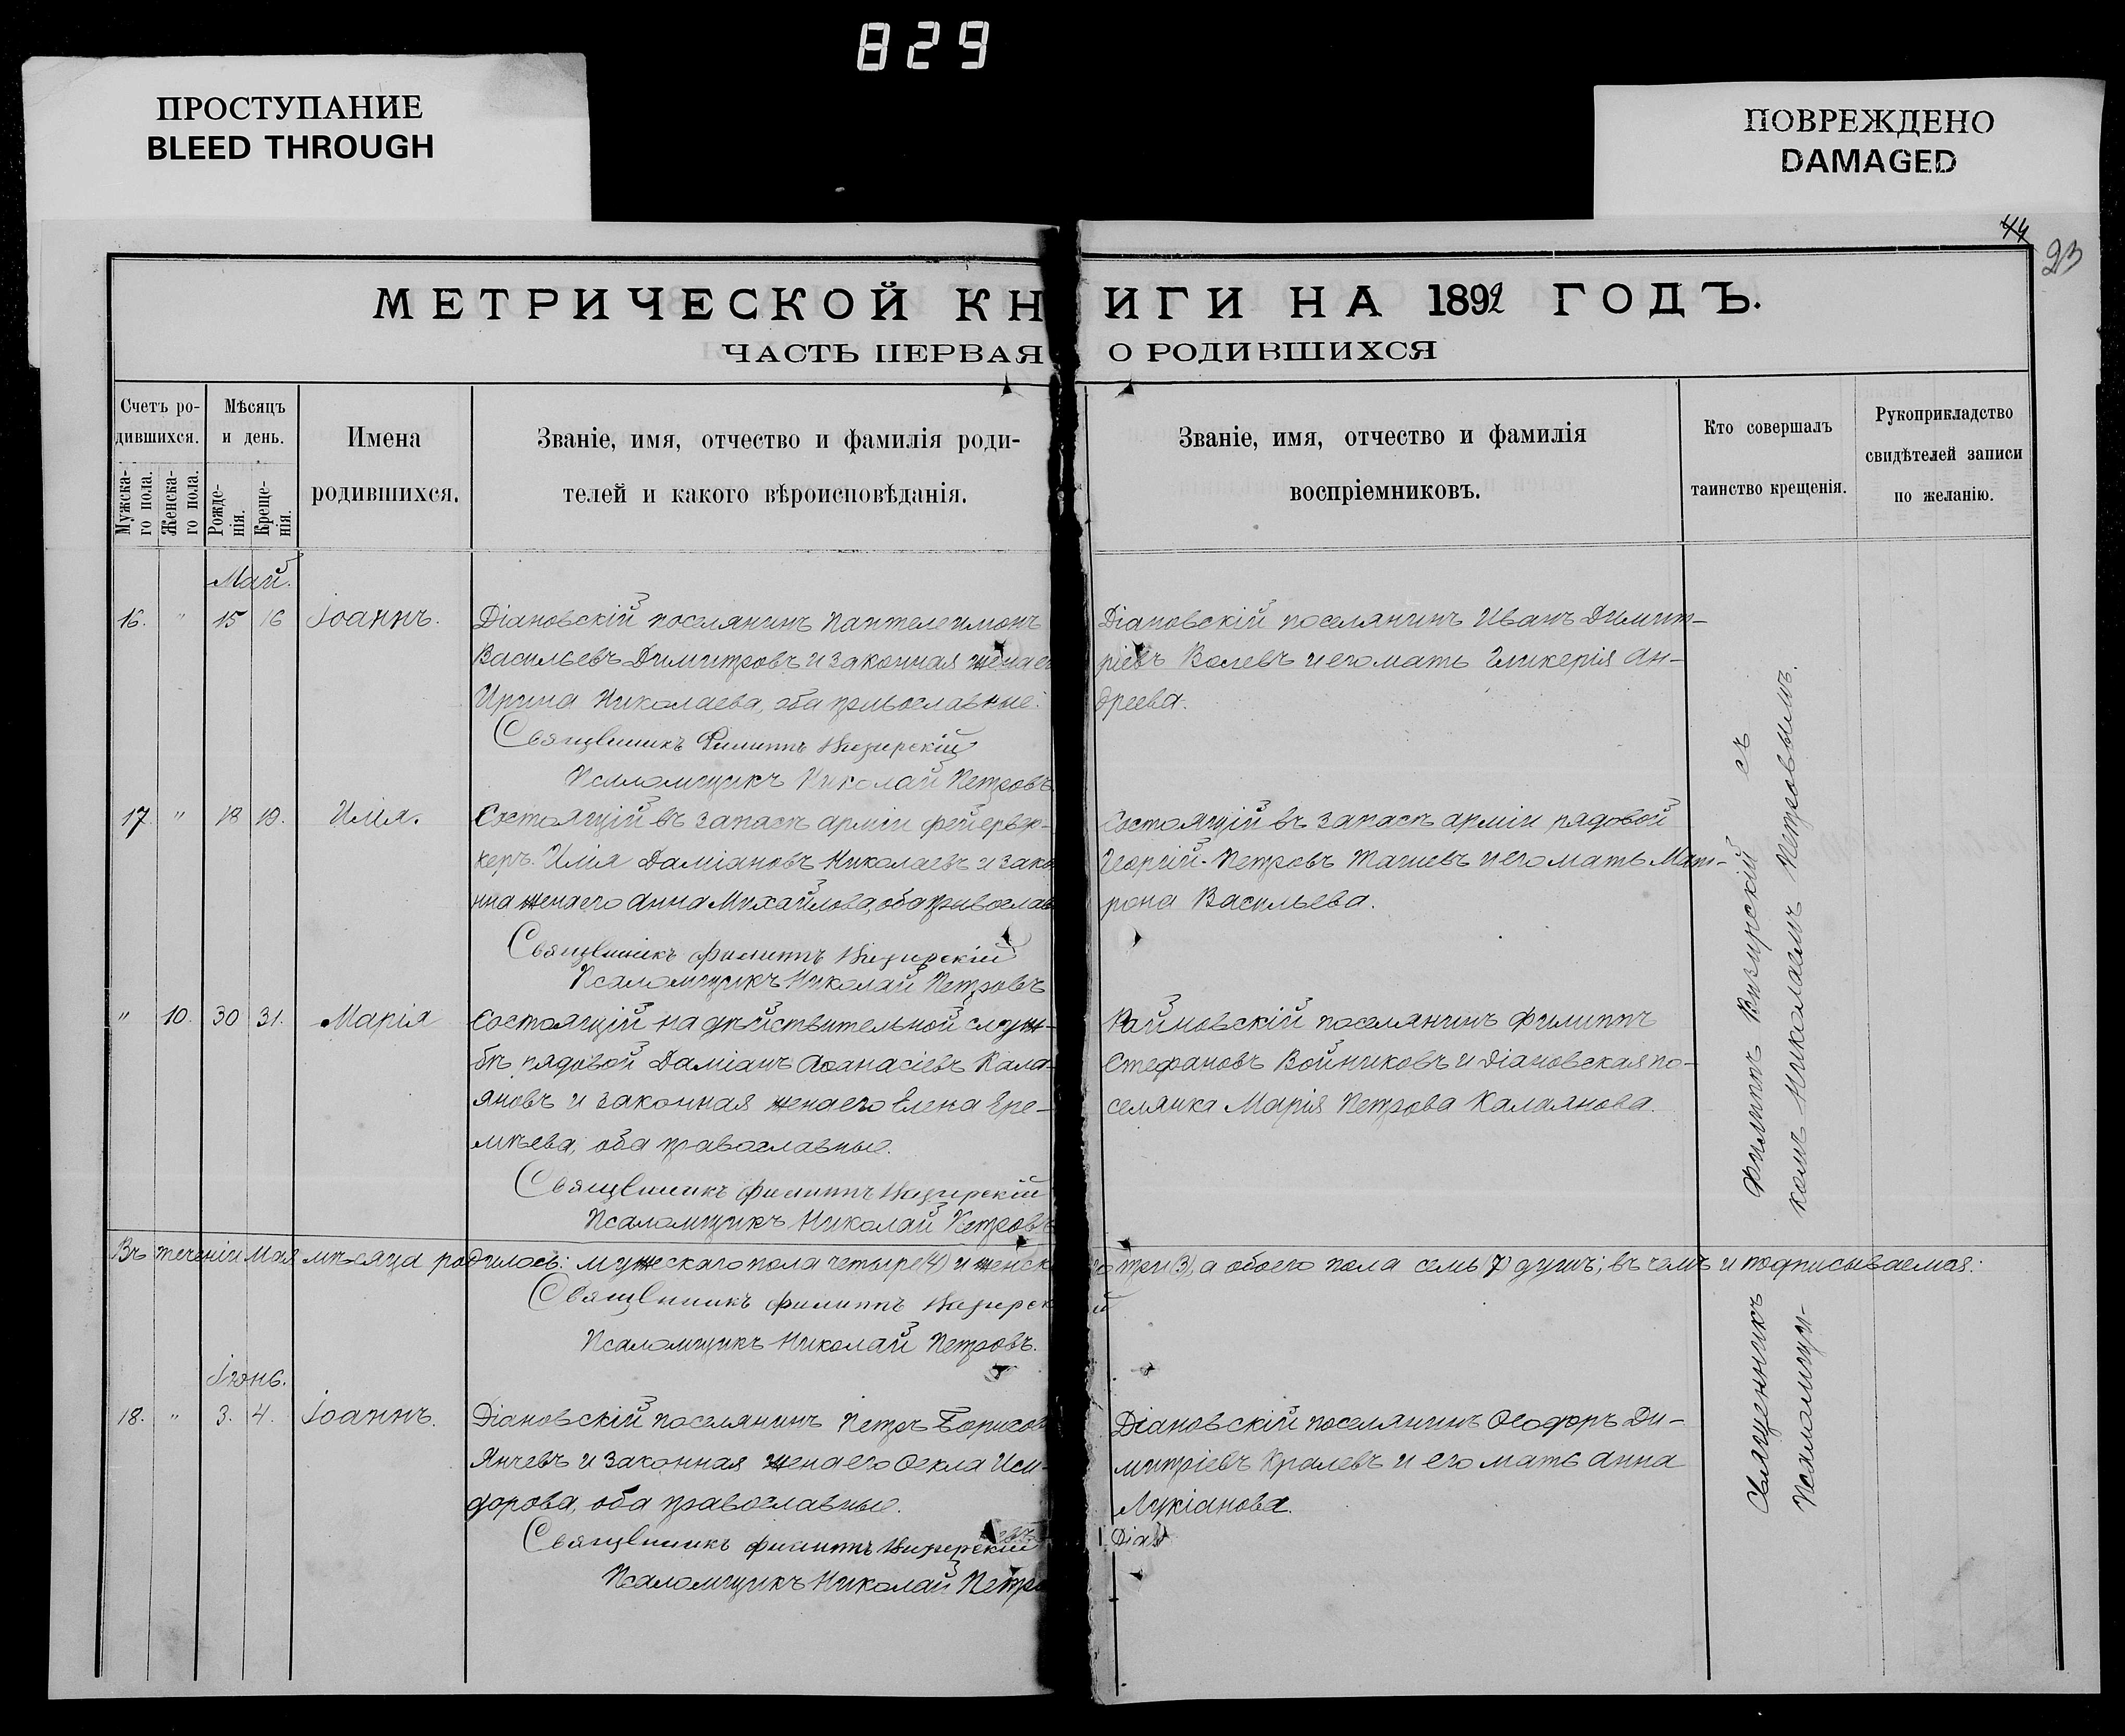 829
ПРОСТУПАНИЕ
BLEED THROUGH
ПОВРЕЖДЕНО
DAMAGED
44
23
МЕТРИЧЕСКОЙ КНИГИ НА 1892 ГОДЪ.
ЧАСТЬ ПЕРВАЯ О РОДИВШИХСЯ
Счетъ ро-
дившихся.
Мужска-
го пола.
Женска-
го пола.
Мѣсяцъ
и день.
Рожде-
нія.
Креще-
нія.
Имена
родившихся.
Званіе, имя, отчество и фамилія роди-
телей и какого вѣроисповѣданія.
Званіе, имя, отчество и фамилія
воспріемниковъ.
Кто совершалъ
таинство крещенія.
Рукоприкладство
свидѣтелей записи
по желанію.
Май.
16. " 15 16 Іоаннъ.
Діановскій поселянинъ Пантелеимонъ
Васильевъ Димитровъ и законная жена ег
Ирина Николаева, оба православные.
Священникъ Филиппъ Визирскій
Псаломщикъ Николай Петровъ.
Діановскій поселянинъ Иванъ Димит-
ріевъ Колевъ и его мать Гликерія Ан-
дреева.
17. " 18 19. Илія.
Состоящій въ запасѣ арміи фейервер-
керъ Илія Даміановъ Николаевъ и зако
нна жена его Анна Михайлова, оба православ
Священникъ Филиппъ Визирскій
Псаломщикъ Николай Петровъ
Состоящій въ запасѣ арміи рядовой
Георгій Петровъ Ташевъ и его мать Мат-
рона Васильева.
" 10. 30 31. Марія
Состоящій на дѣйствительной служ-
бѣ рядовой Даміанъ Аѳанасіевъ Кала-
яновъ и законная жена его Елена Ере-
мѣева, оба православные.
Священникъ Филиппъ Визирскій
Псаломщикъ Николай Петровъ
Стефановъ Войниковъ и Діановская по-
селянка Марія Петрова Калаянова.
Въ теченіи Мая мѣсяца родилось: мужескаго пола четыре (4) и женскаго три (3), а обоего пола семь (7) душъ; въ чемъ и подписываемся:
Священникъ Филиппъ Визирскій
Псаломщикъ Николай Петровъ.
Іюнь.
18. " 3. 4. Іоаннъ.
Діановскій поселянинъ Петръ Борисов
Янчевъ и законная жена его Ѳекла Иси-
дорова, оба православные.
Священникъ Филиппъ Визирскій
Псаломщикъ Николай Петро
Діановскій поселянинъ Ѳеодоръ Ди-
митріевъ Кралевъ и его мать Анна
Лукіанова.
Діан
Священникъ Филиппъ Визирскій съ
Псаломщи-
комъ Николаемъ Петровымъ.